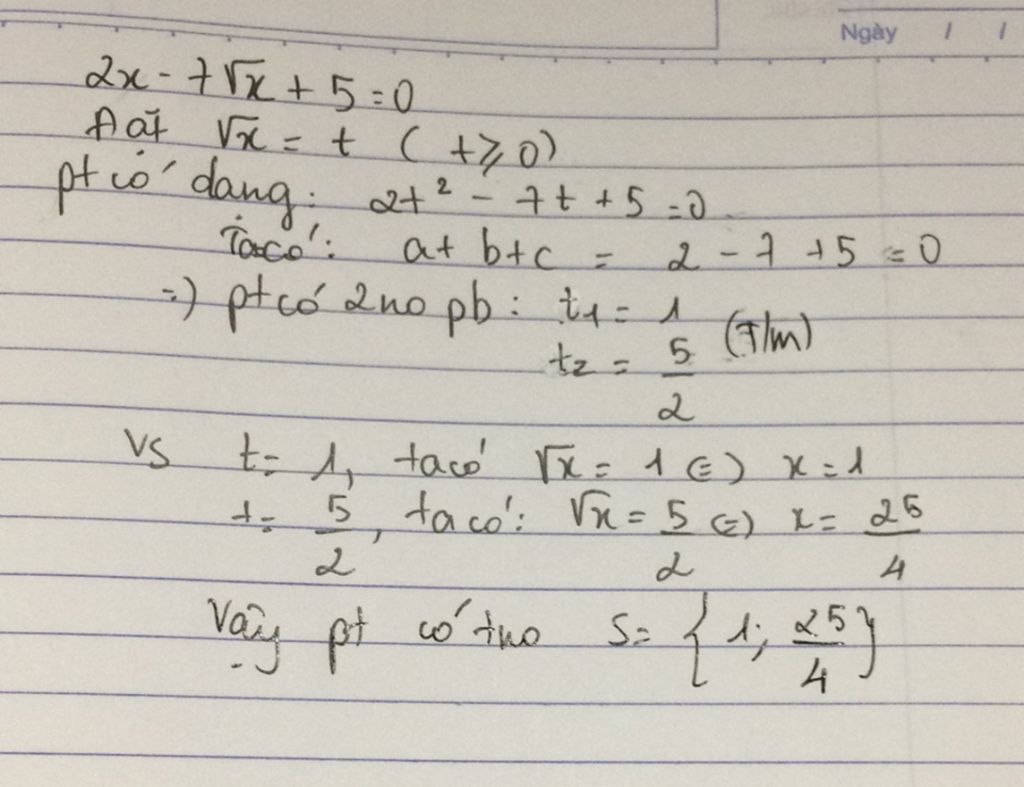 Ngày / /
2x - 7√x + 5 = 0
Đặt √x = t ( t ≥ 0)
pt có dạng: 2t² - 7t + 5 = 0
Ta có: a + b + c = 2 - 7 + 5 = 0
=) pt có 2 no pb: t₁ = 1
t₂ = 5/2 (T/m)
Vs t = 1, ta có √x = 1 (=) x = 1
t = 5/2, ta có: √x = 5/2 (=) x = 25/4
Vậy pt có tno S = { 1; 25/4 }